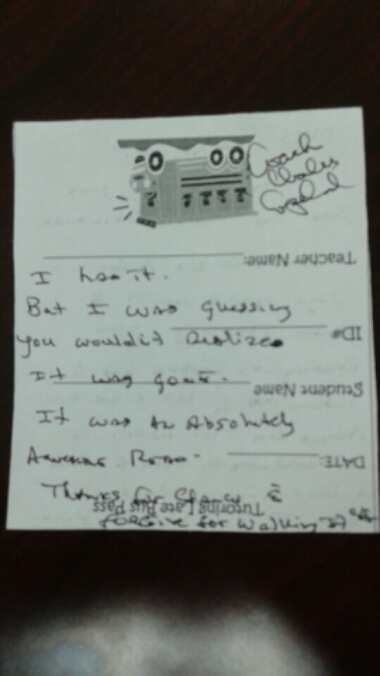 Coach
Teacher Name:
I have it.
But I was guessing
ID#
you wouldn't Realize
It was gone.
Student Name
It was an Absolutely
Awesome
DATE:
Thanks for
Tutoring Late Bus Pass
Forgive for walking